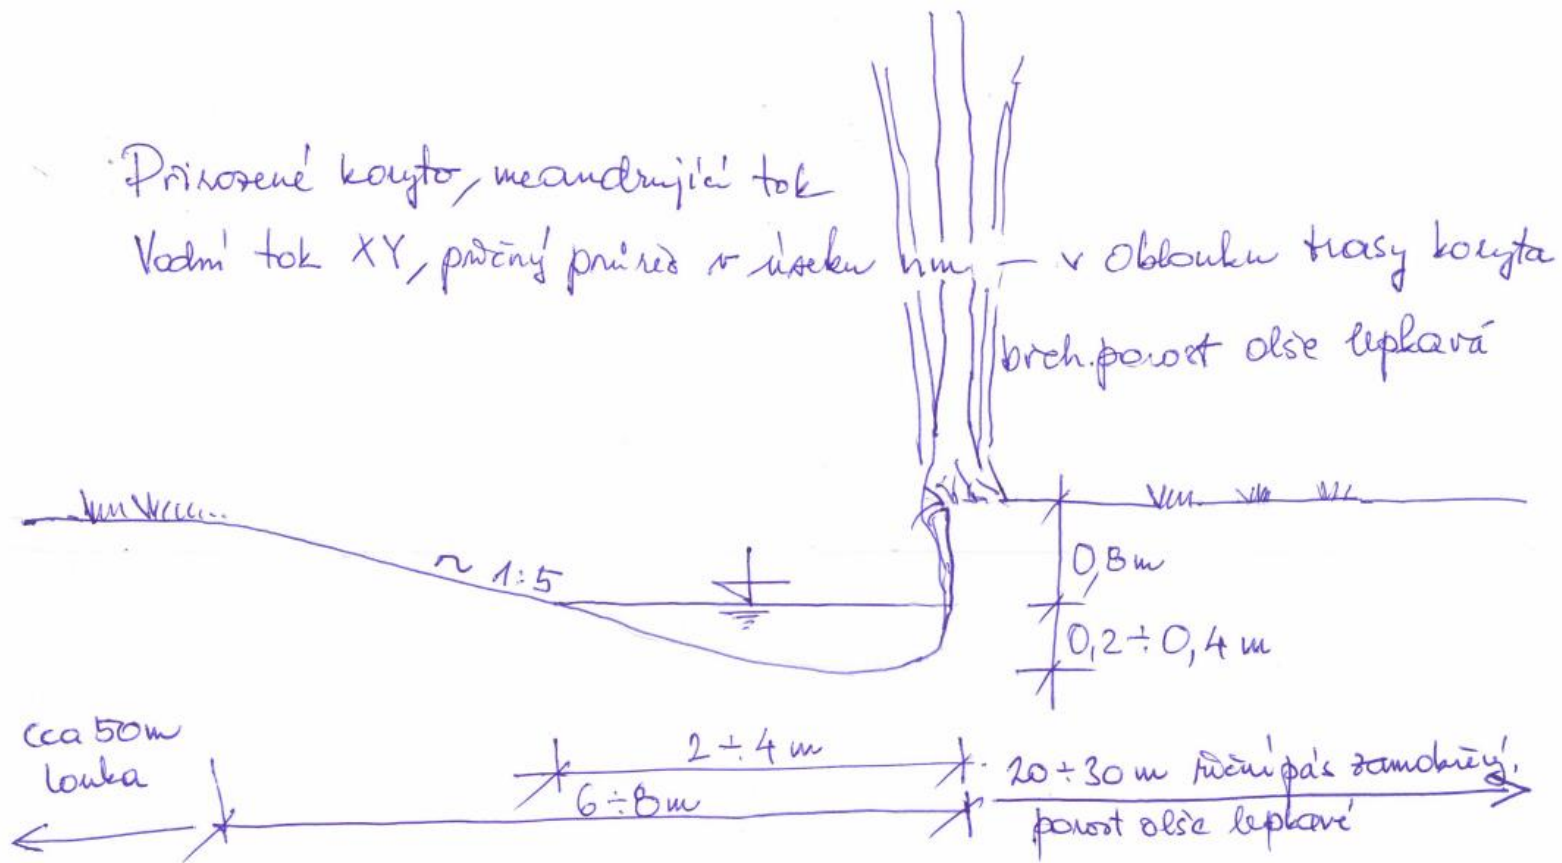 Přirozené koryto, meandrující tok
Vodní tok XY, příčný průřez v úseku nm – v oblouku trasy koryta
břeh. porost olše lepkavá
~ 1:5
0,8m
0,2÷0,4m
cca 50m
louka
2÷4m
6÷8m
20÷30m říční pás zamokřený,
porost olše lepkavé